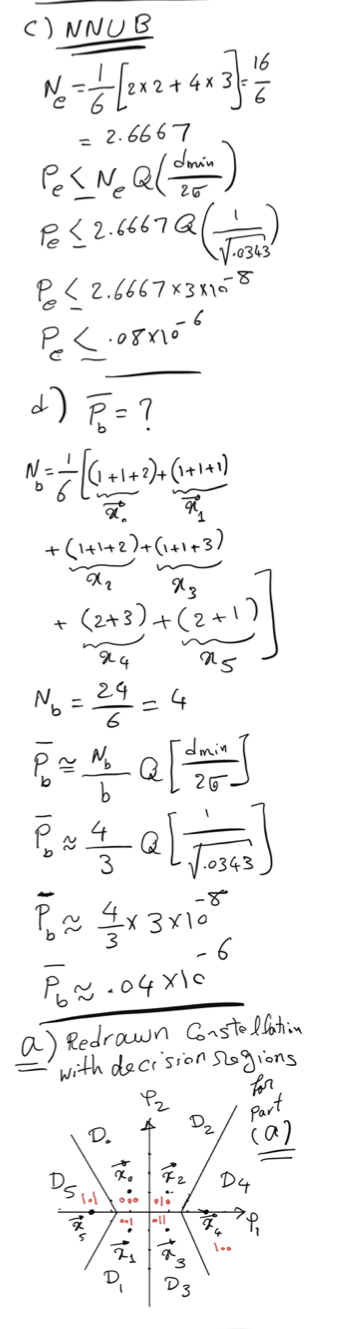 c) NNUB
N_e = 1/6 [2×2 + 4×3] = 16/6
= 2.6667
P_e ≤ N_e Q(dmin/2σ)
P_e ≤ 2.6667 Q(1/√.0343)
P_e ≤ 2.6667×3×10^-8
P_e ≤ .08×10^-6
d) P̄_b = ?
N_b = 1/6 [(1+1+2)+(1+1+1)
x⃗_0 x⃗_1
+(1+1+2)+(1+1+3)
x_2 x_3
+ (2+3) + (2+1)]
x_4 x_5
N_b = 24/6 = 4
P̄_b ≅ N_b/b Q[dmin/2σ]
P̄_b ≈ 4/3 Q[1/√.0343]
P̄_b ≈ 4/3 × 3×10^-8
P̄_b ≈ .04×10^-6
a) Redrawn Constellation
with decision regions
for
part
(a)
φ_2
D_0 D_2
D_5 x⃗_0 x⃗_2 D_4
101 000 010
x⃗_5 001 011 x⃗_4 φ_1
x⃗_1 x⃗_3 100
D_1 D_3